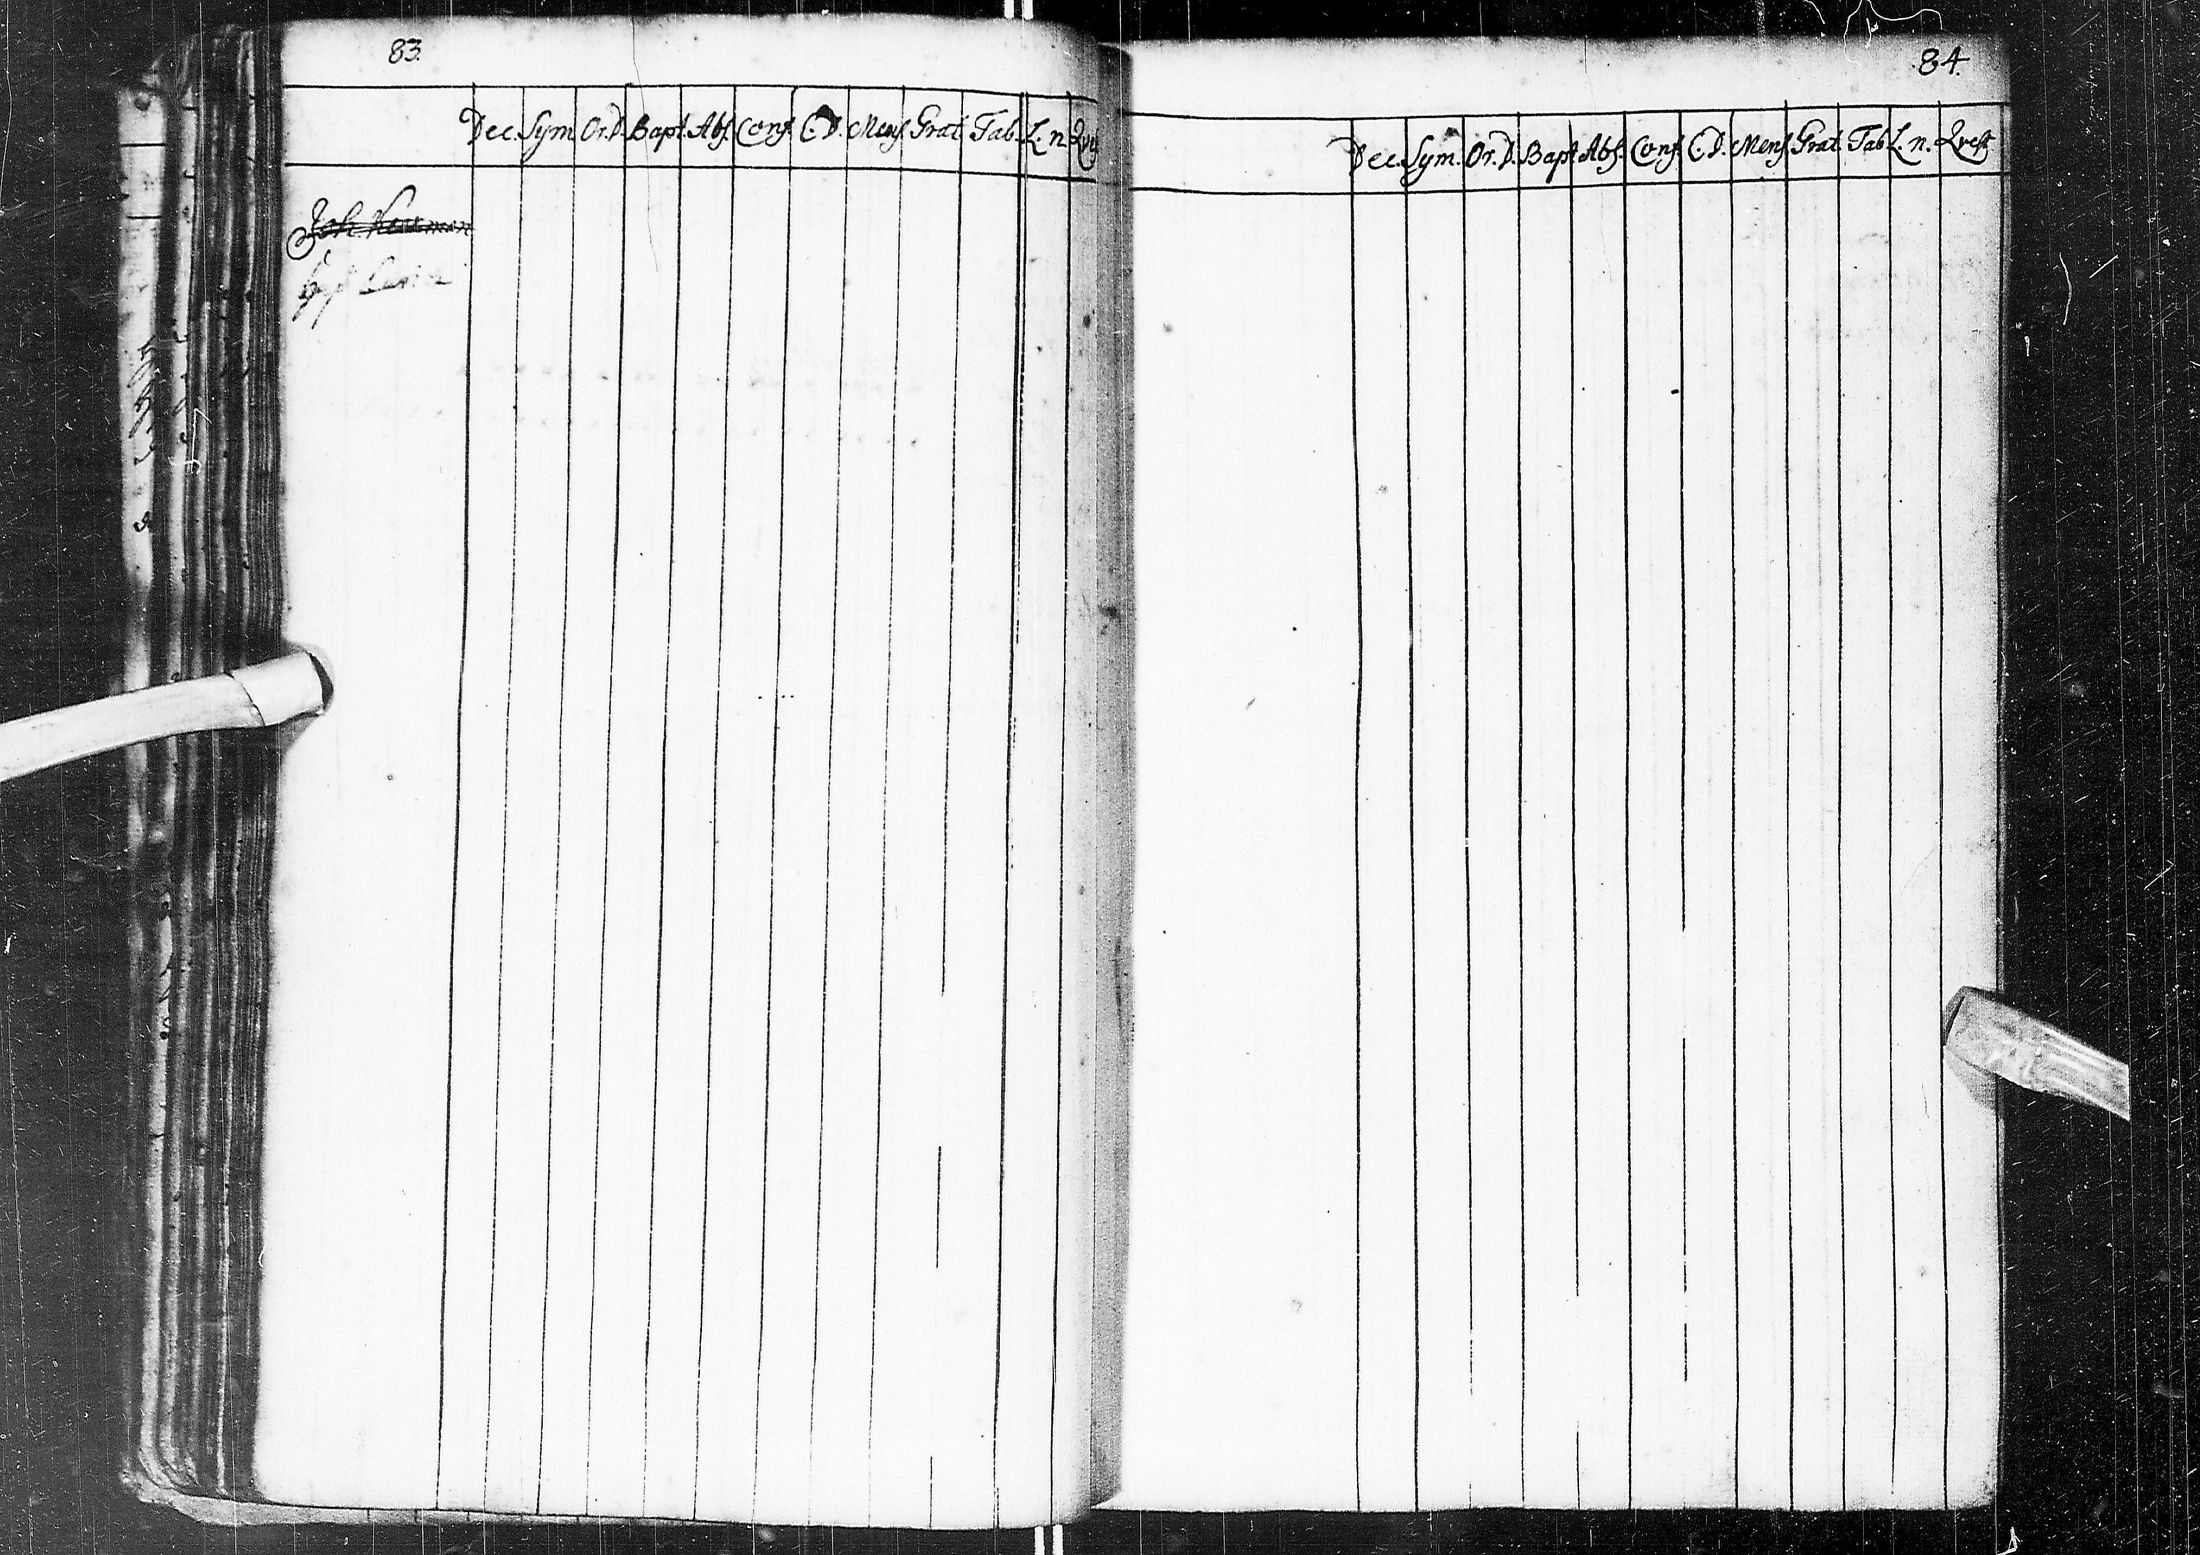 83.
Dec. Sym. Or.D. Bapt. Abs. Conf. C.D. Mens. Grat. Tab. L. n. Qvest
Joh. Newman
84.
Dec. Sym. Or.D. Bapt. Abs. Conf. C.D. Mens. Grat. Tab. L. n. Qvest